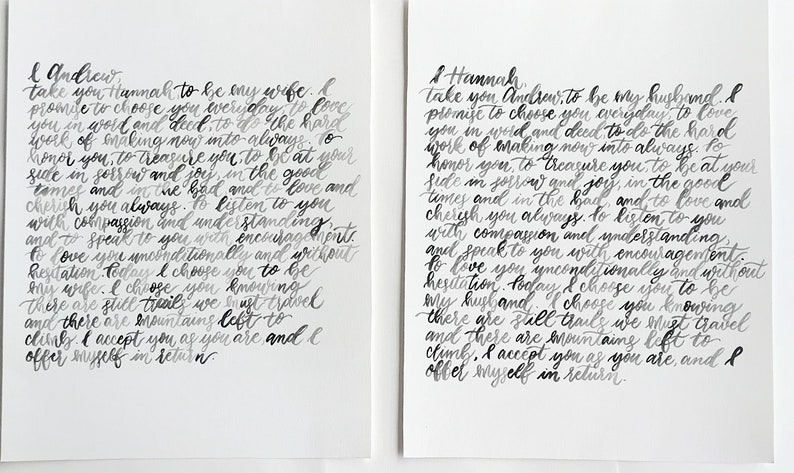 I Andrew,
take you Hannah to be my wife. I
promise to choose you everyday, to love
you in word and deed, to do the hard
work of making now into always. To
honor you, to treasure you, to be at your
side in sorrow and joy, in the good
times and in the bad and to love and
cherish you always. To listen to you
with compassion and understanding,
and to speak to you with encouragement.
To love you unconditionally and without
hesitation. Today I choose you to be
my wife. I choose you knowing
there are still trails we must travel
and there are mountains left to
climb. I accept you as you are and I
offer myself in return.
I Hannah,
take you Andrew, to be my husband. I
promise to choose you everyday, to love
you in word and deed to do the hard
work of making now into always. To
honor you, to treasure you, to be at your
side in sorrow and joy, in the good
times and in the bad, and to love and
cherish you always. To listen to you
with compassion and understanding
and speak to you with encouragement.
To love you unconditionally and without
hesitation. Today I choose you to be
my husband. I choose you knowing
there are still trails we must travel
and there are mountains left to
climb. I accept you as you are, and I
offer myself in return.